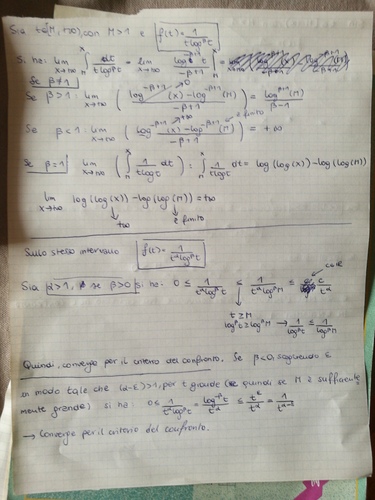 Sia t∈[M,+∞), con M>1 e f(t) = 1/(t log^β t)
Si ha: lim x→+∞ ∫ dt/(t log^β t) = lim x→+∞ log^(-β+1) t/(-β+1) =
Se β≠1
Se β>1: lim x→+∞ ( (log^(-β+1)(x) - log^(-β+1)(M))/(-β+1) ) = log^(-β+1)(M)/(β-1)
Se β<1: lim x→+∞ ( (log^(-β+1)(x) - log^(-β+1)(M))/(-β+1) ) = +∞
è finito
Se β=1: lim x→+∞ ( ∫ 1/(t log t) dt ) : ∫ 1/(t log t) dt = log(log(x)) - log(log(M))
lim x→+∞ log(log(x)) - log(log(M)) = +∞
+∞ è finito
Sullo stesso intervallo f(t) = 1/(t^α log^β t)
Sia α>1, se β>0 si ha: 0 ≤ 1/(t^α log^β t) ≤ 1/(t^α log^β M) ≤ c/t^α
t ≥ M
log^β t ≥ log^β M → 1/log^β t ≤ 1/log^β M
Quindi, converge per il criterio del confronto. Se β<0, scegliendo ε
in modo tale che (α-ε)>1, per t grande (e quindi se M è sufficiente
mente grande) si ha: 0 ≤ 1/(t^α log^β t) = log^(-β) t/t^α ≤ t^ε/t^α = 1/t^(α-ε)
→ Converge per il criterio del confronto.